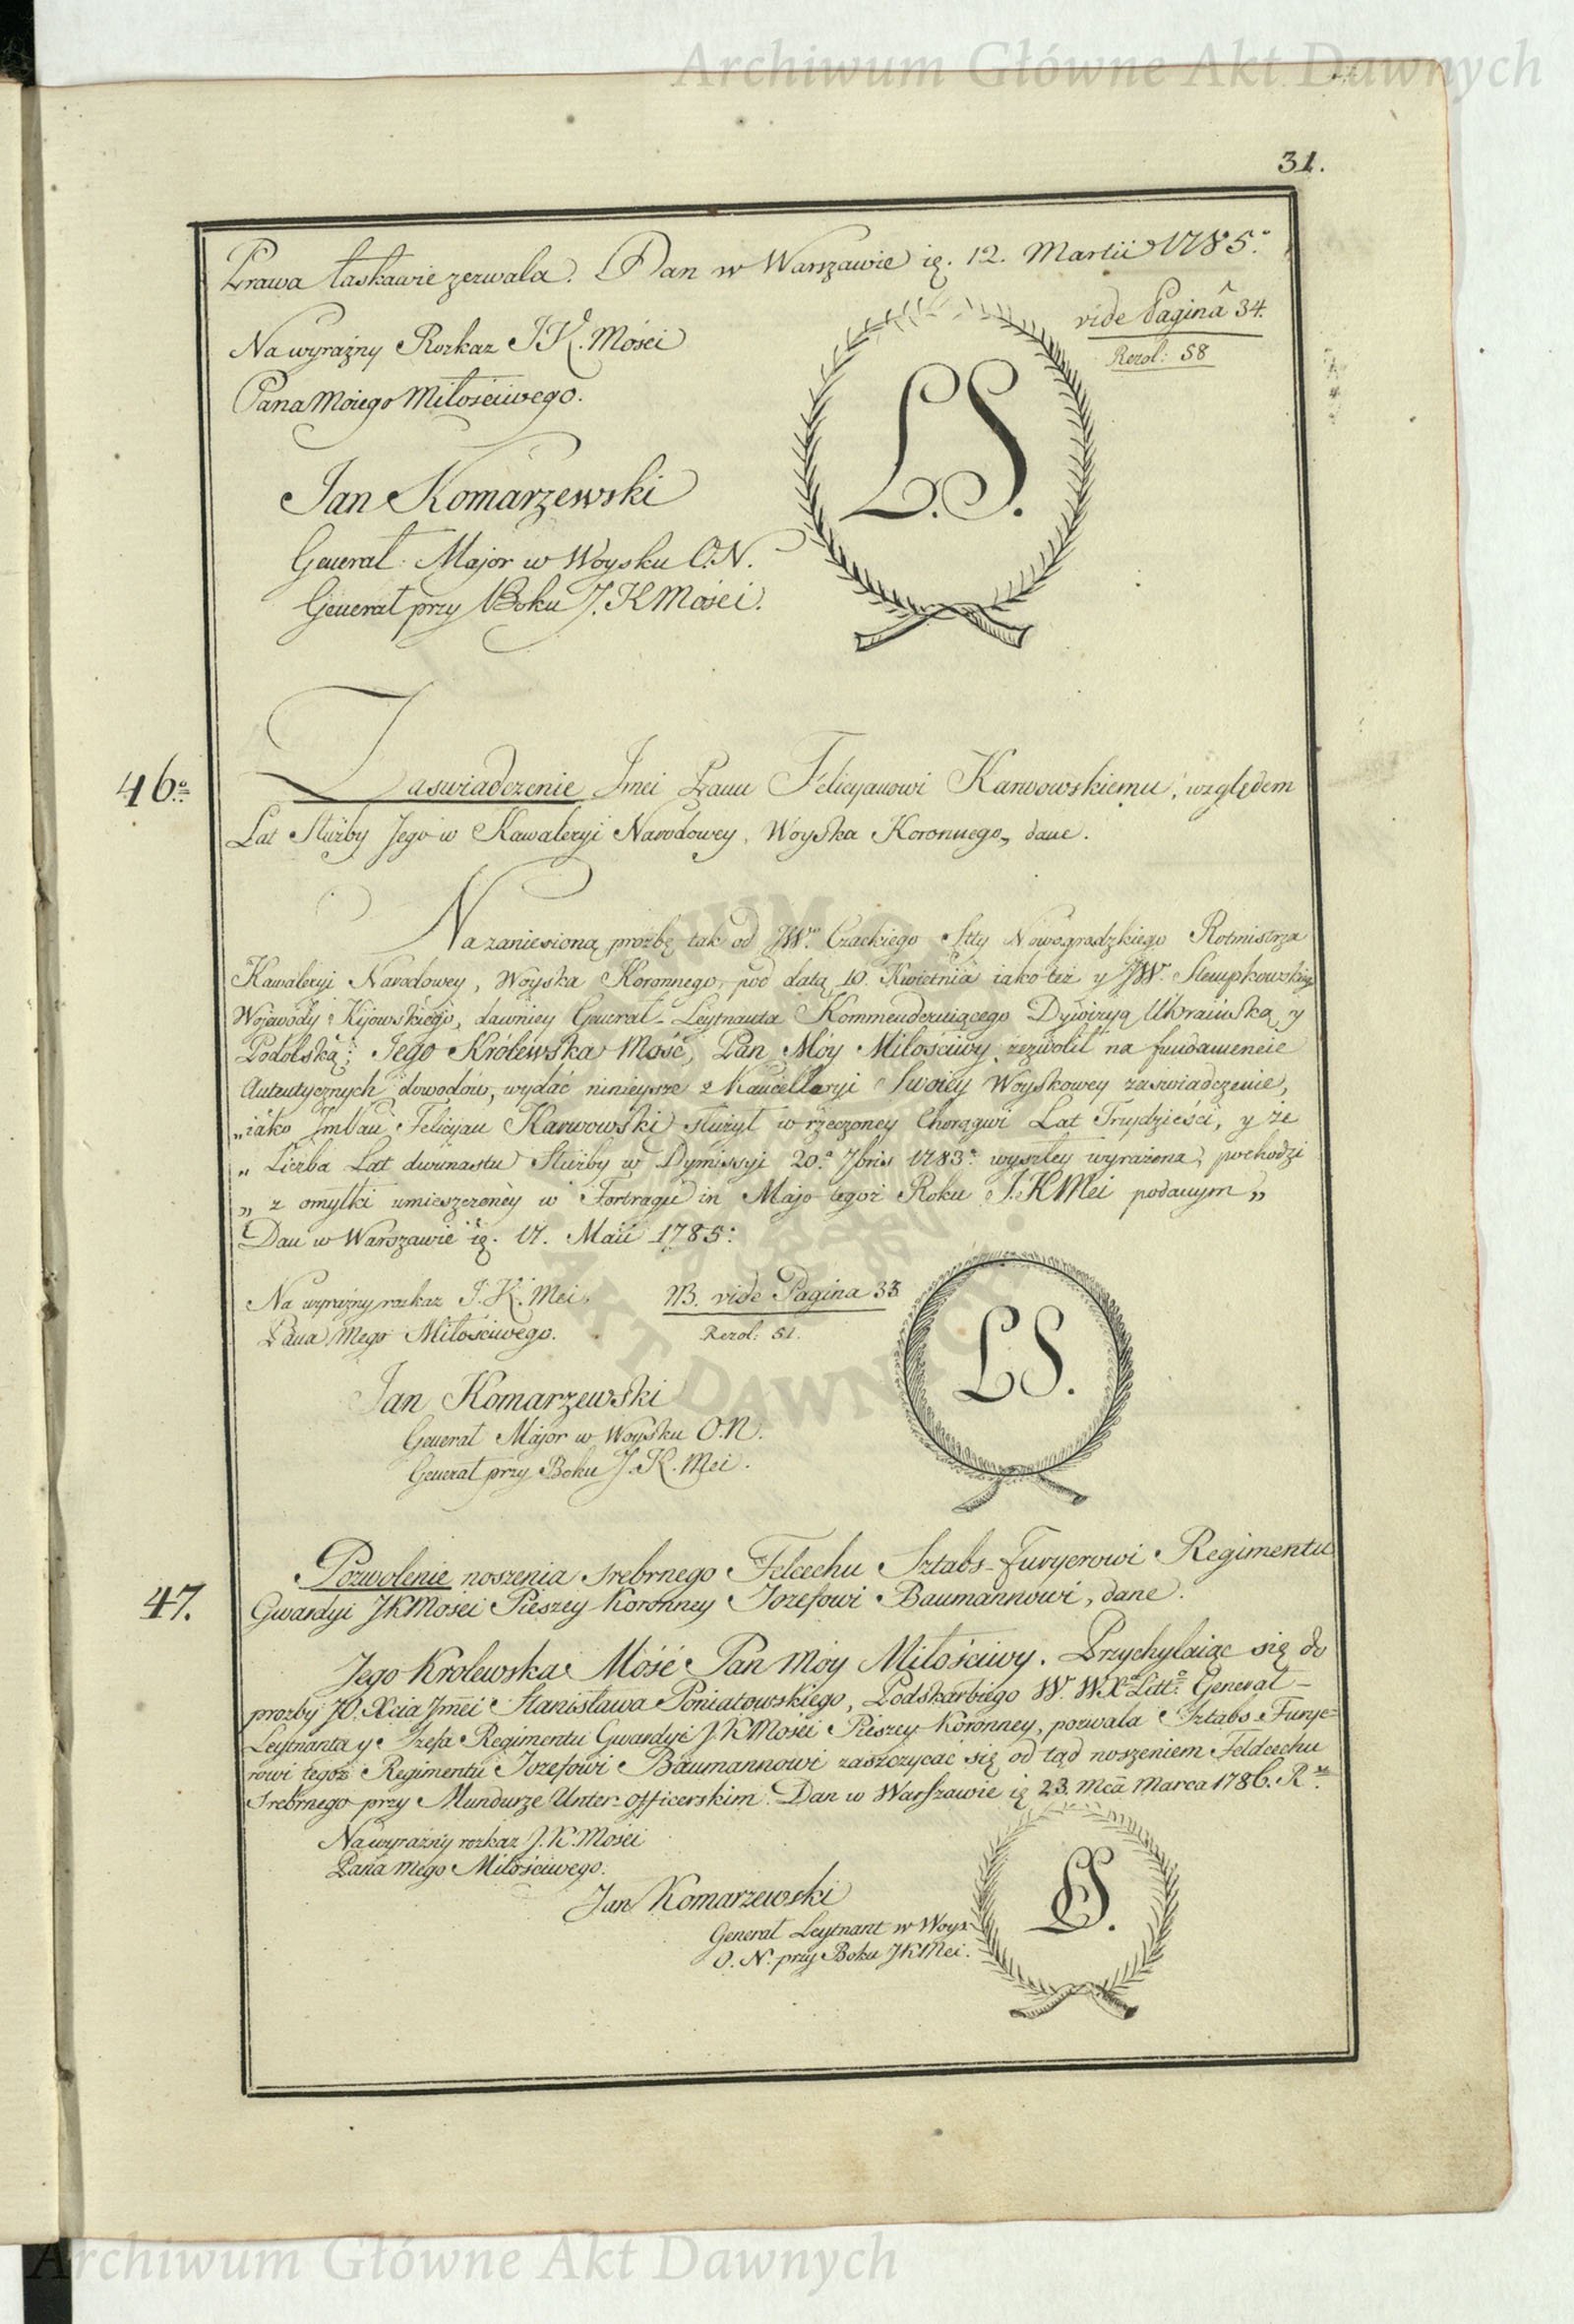 Archiwum Główne Akt Dawnych
31.
Prawa łaskawie zezwala. Dan w Warszawie ię. 12. Martii 1785.°
vide Paginâ 34.
Rezol: 58
Na wyraźny Rozkaz J K. Mości
Pana Moiego Miłościwego.
L.S.
Jan Komarzewski
Generał Major w Woysku O.N.
Generał przy Boku J. K Mości.
46.°
Zaswiadczenie Jmci Panu Felicyanowi Karwowskiemu, względem
Lat Służby Jego w Kawaleryi Narodowey, Woyska Koronnego, dane.
Na zaniesioną prozbę tak od JW.° Czackiego Stty Nowogradzkiego Rotmistrza
Kawaleryi Narodowey, Woyska Koronnego, pod datą 10. Kwietnia iako też y JW. Stempkowskieg
Wojewody Kijowskiego, dawniey Generał-Leytnanta Kommenderuiącego Dywizyą Ukraińską y
Podolską; Jego Królewska Mość, Pan Móy Miłościwy zezwolił na fundamencie
Autentycznych dowodów, wydać ninieysze z Kancellaryi Swoiey Woyskowey zaswiadczenie,
„iako JmPan Felicyan Karwowski służył w rzeczoney Chorągwi Lat Trzydzieści, y że
„ Liczba Lat dwunastu Służby w Dymissyi 20.ª 7bris 1783.° wyszłey wyrażona, pochodzi
„ z omyłki umieszczoney w Fortragu in Majo tegoż Roku J.K Mci podanym „
Dan w Warszawie ię. 17. Maii 1785.°
Na wyraźny rozkaz J. K. Mci,
Pana Mego Miłościwego.
NB. vide Pagina 33
Rezol: 51.
LS.
Jan Komarzewski
Generał Major w Woysku O.N.
Generał przy Boku J. K. Mci.
47.
Pozwolenie noszenia srebrnego Felcechu Sztabs-Furyerowi Regimentu
Gwardyi JKMosci Pieszey Koronney Jozefowi Baumannowi, dane.
Jego Krolewska Mość Pan Móy Miłościwy. Przychylaiąc się do
prozby JO. Xcia Jmci Stanisława Poniatowskiego, Podskarbiego W. W.X.ª Litt.° Generał-
Leytnanta y Szefa Regimentu Gwardyi J. K Mości Pieszey Koronney, pozwala Sztabs Furye=
rowi tegoż Regimentu Jozefowi Baumannowi zaszczycać się od tąd noszeniem Feldcechu
Srebrnego przy Mundurze Unter-officerskim. Dan w Warszawie ię 23. Mca Marca 1786. R.
Na wyraźny rozkaz J. K Mości
Pana Mego Miłościwego.
LS.
Jan Komarzewski
Generał Leytnant w Woys:
O. N. przy Boku JKMci.
Archiwum Główne Akt Dawnych